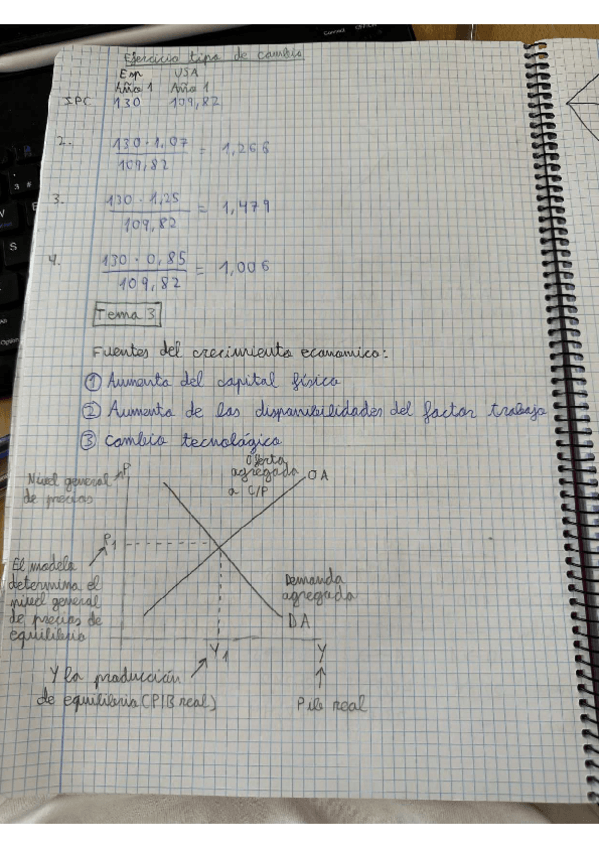 Ejercicio tipo de cambio
Esp USA
Año 1 Año 1
IPC 130 109,82
2. 130 · 1,07 / 109,82 = 1,266
3. 130 · 1,25 / 109,82 = 1,479
4. 130 · 0,85 / 109,82 = 1,006
Tema 3
Fuentes del crecimiento economico:
① Aumento del capital físico
② Aumento de las disponibilidades del factor trabajo
③ Cambio tecnológico
Nivel general
de precios
P
Oferta
agregada
a C/P
OA
P1
El modelo
determina el
nivel general
de precios de
equilibrio
Demanda
agregada
DA
Y1
Y
Y la producción
de equilibrio (PIB real)
Pib real